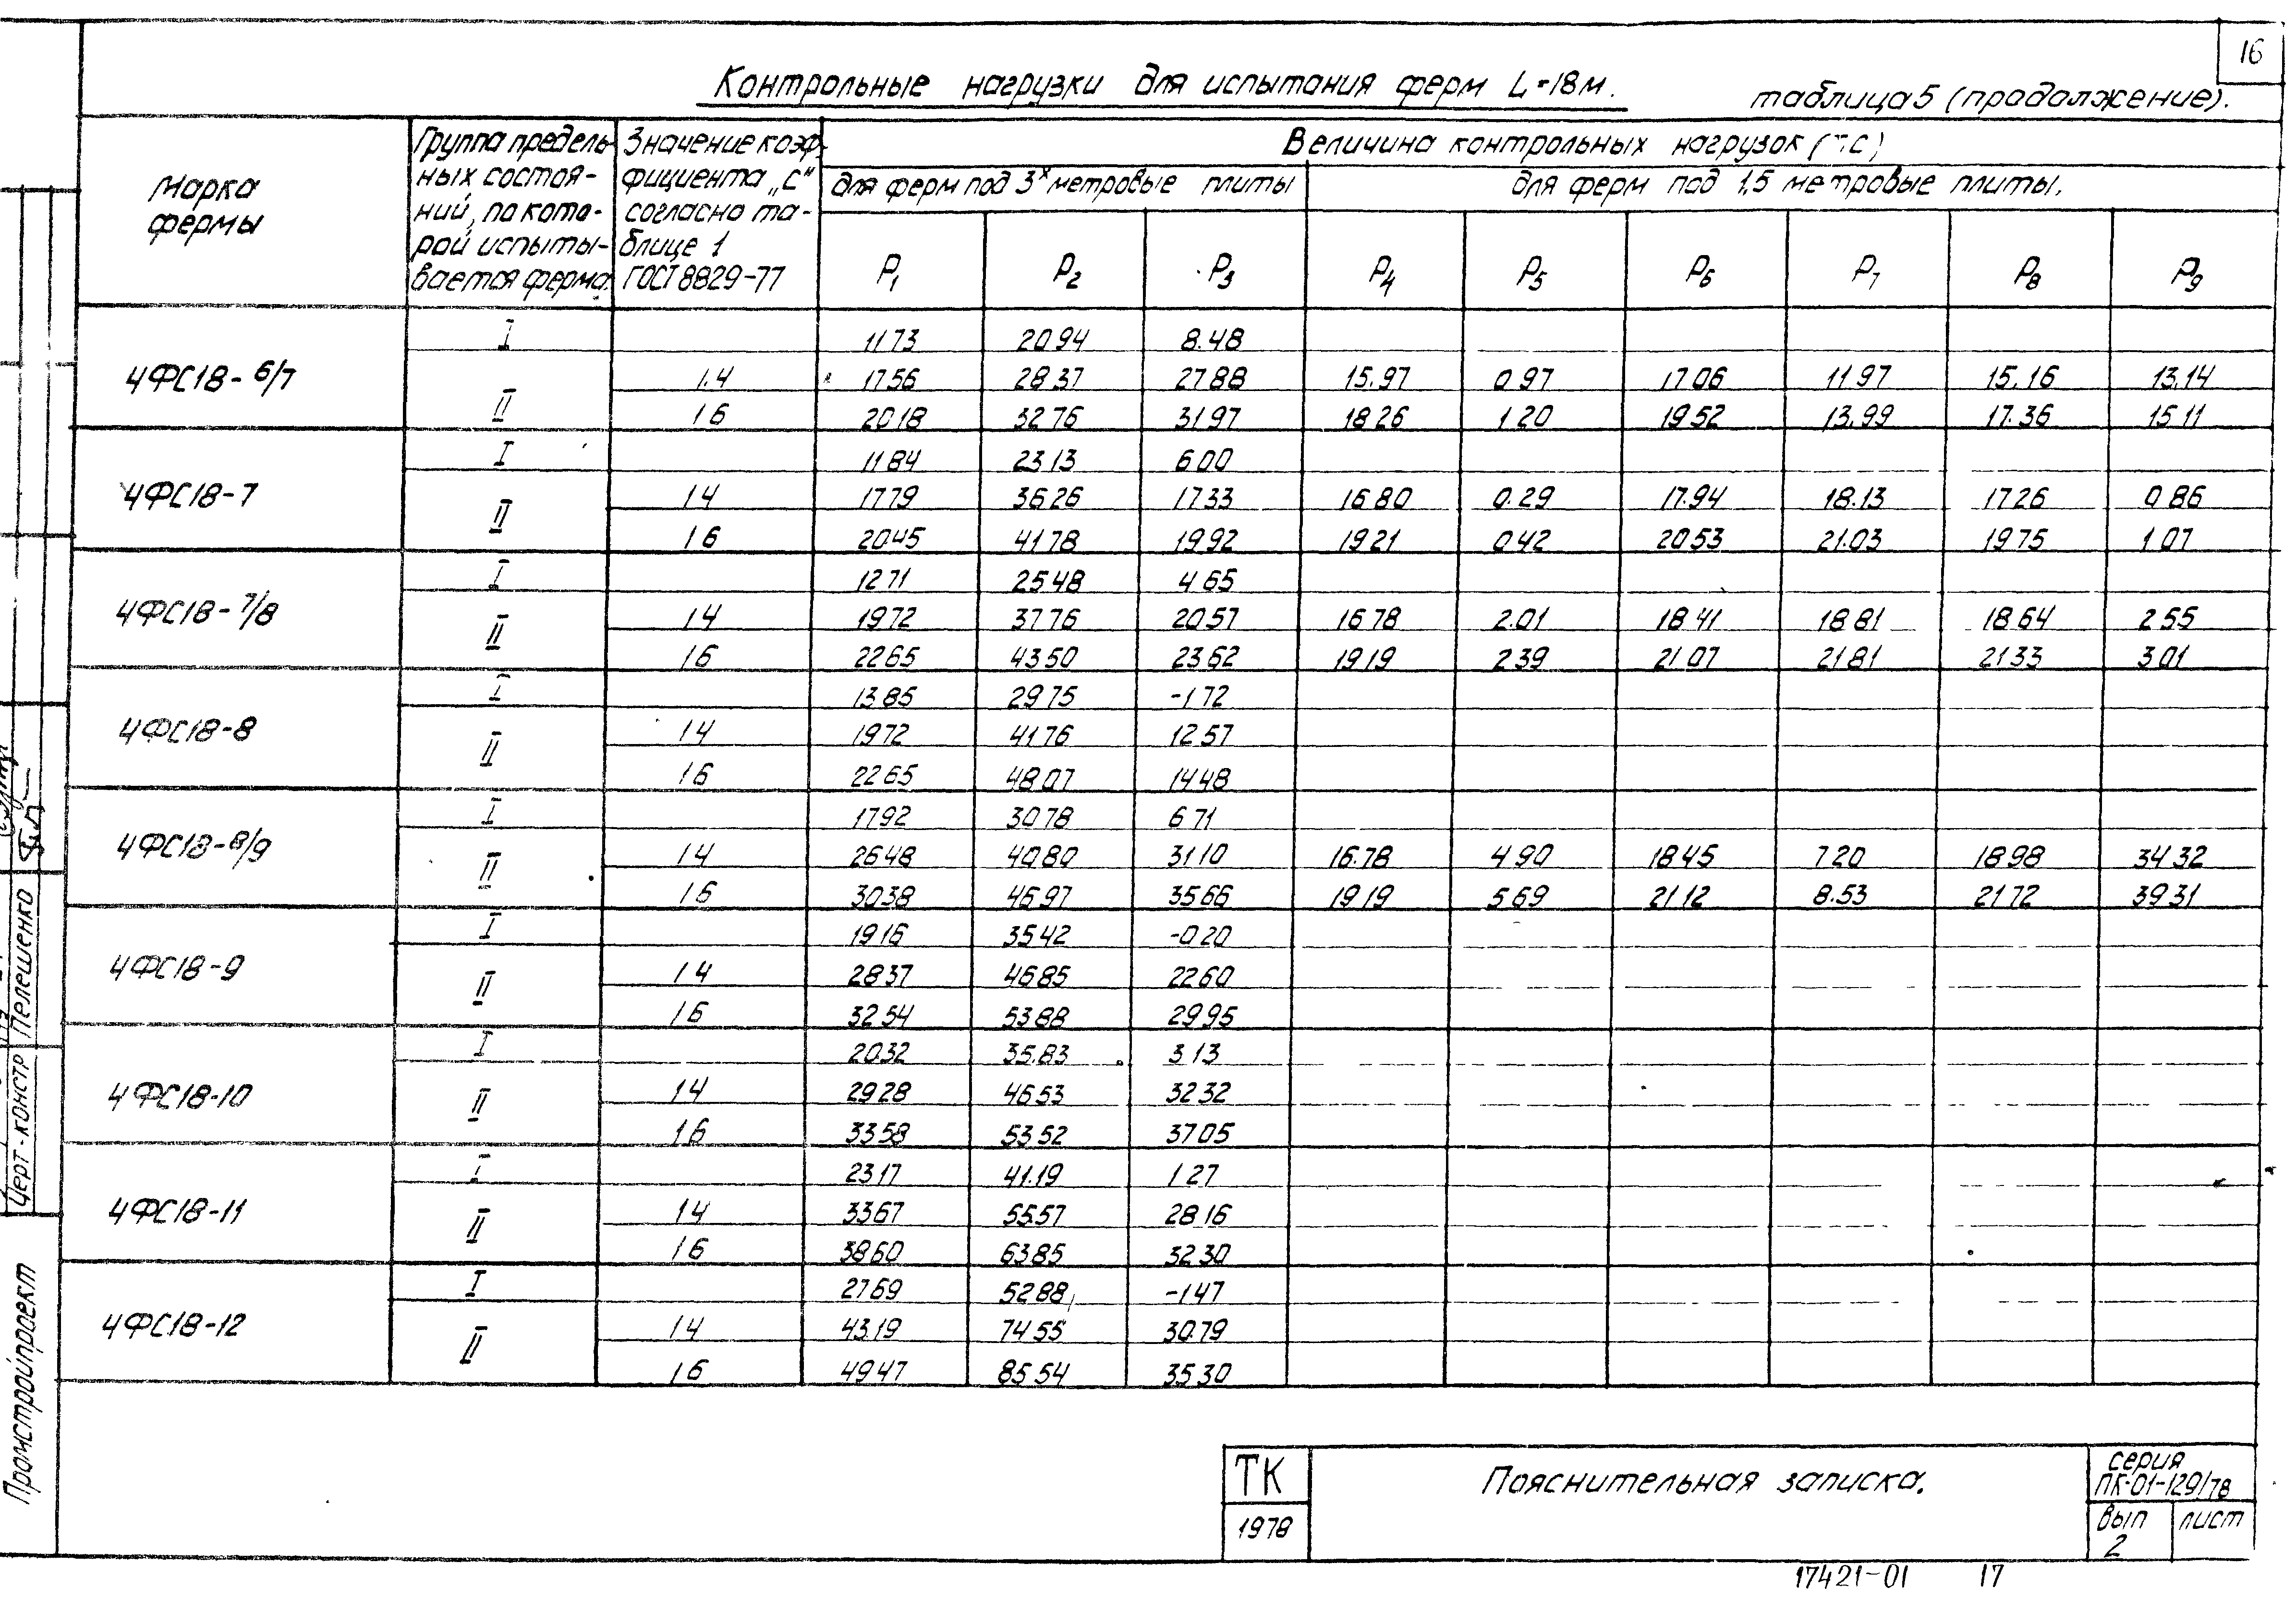 16
Контрольные нагрузки для испытания ферм L=18м.
таблица 5 (продолжение).
Марка фермы
Группа предель-
ных состоя-
ний, по кото-
рой испыты-
вается ферма.
Значение коэф-
фициента „С"
согласно та-
блице 1
ГОСТ 8829-77
Величина контрольных нагрузок (тс)
для ферм под 3х метровые плиты
для ферм под 1,5 метровые плиты.
P1 P2 P3 P4 P5 P6 P7 P8 P9
4ФС18-6/7
I 11.73 20.94 8.48
II 1.4 17.56 28.37 27.88 15.97 0.97 17.06 11.97 15.16 13.14
1.6 20.18 32.76 31.97 18.26 1.20 19.52 13.99 17.36 15.11
4ФС18-7
I 11.84 23.13 6.00
II 1.4 17.79 36.26 17.33 16.80 0.29 17.94 18.13 17.26 0.86
1.6 20.45 41.78 19.92 19.21 0.42 20.53 21.03 19.75 1.07
4ФС18-7/8
I 12.71 25.48 4.65
II 1.4 19.72 37.76 20.57 16.78 2.01 18.41 18.81 18.64 2.55
1.6 22.65 43.50 23.62 19.19 2.39 21.07 21.81 21.33 3.01
4ФС18-8
I 13.85 29.75 -1.72
II 1.4 19.72 41.76 12.57
1.6 22.65 48.07 14.48
4ФС18-8/9
I 17.92 30.78 6.71
II 1.4 26.48 40.80 31.10 16.78 4.90 18.45 7.20 18.98 34.32
1.6 30.38 46.97 35.66 19.19 5.69 21.12 8.53 21.72 39.31
4ФС18-9
I 19.16 35.42 -0.20
II 1.4 28.37 46.85 22.60
1.6 32.54 53.88 29.95
4ФС18-10
I 20.32 35.83 3.13
II 1.4 29.28 46.53 32.32
1.6 33.58 53.52 37.05
4ФС18-11
I 23.17 41.19 1.27
II 1.4 33.67 55.57 28.16
1.6 38.60 63.85 32.30
4ФС18-12
I 27.69 52.88 -1.47
II 1.4 43.19 74.55 30.79
1.6 49.47 85.54 35.30
Церт-констр Пелешенко
Промстройпроект
ТК
1978
Пояснительная записка.
серия
ПК-01-129/78
вып
2
лист
17421-01 17